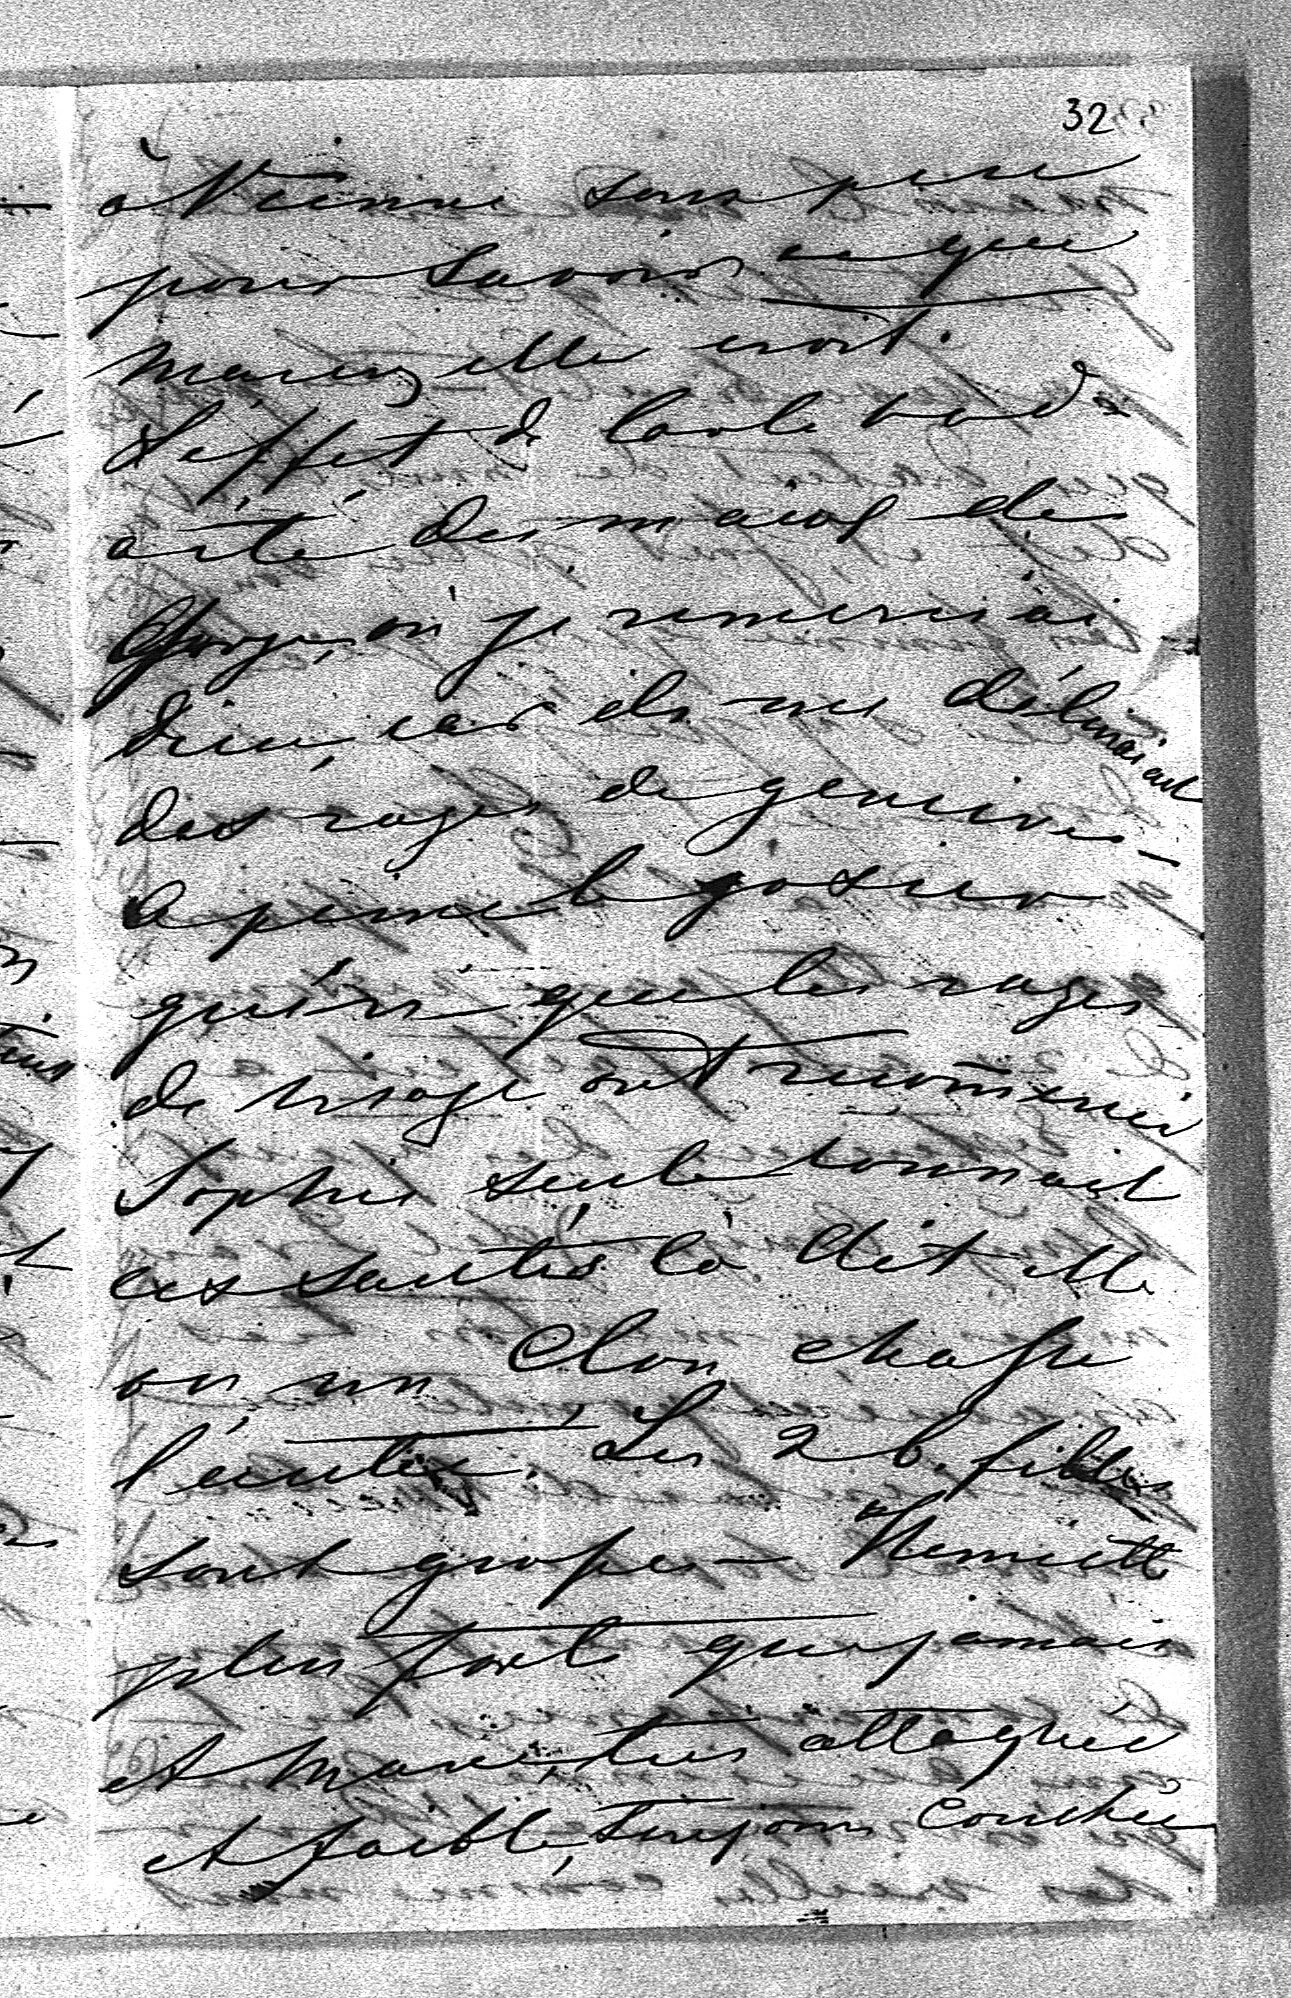 32
à Vienne sans peu
pour savoir ce que
Marie elle croit.
L'effet de
a été des maios des
Gorges, où je remerciai
Dieu, car ils me délivraient
des rages de gencives –
A peine le gosier
guéri que les rages
de visage ont recom̃encé
Sophie seule connait
ces santés là dit elle
on un Clou chasse
l'autre. Les 2 b. filles
sont gripées – Henriette
plus forte que jamais
et Marie très attaquée
et faible, toujours couchée